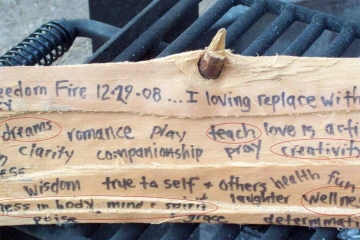 eedom Fire 12-29-08 ... I loving replace with
dreams romance play teach love is acti
clarity companionship pray creativit
ess
wisdom true to self + others health fun
ess in body, mind + spirit laughter wellne
poise grace determinat